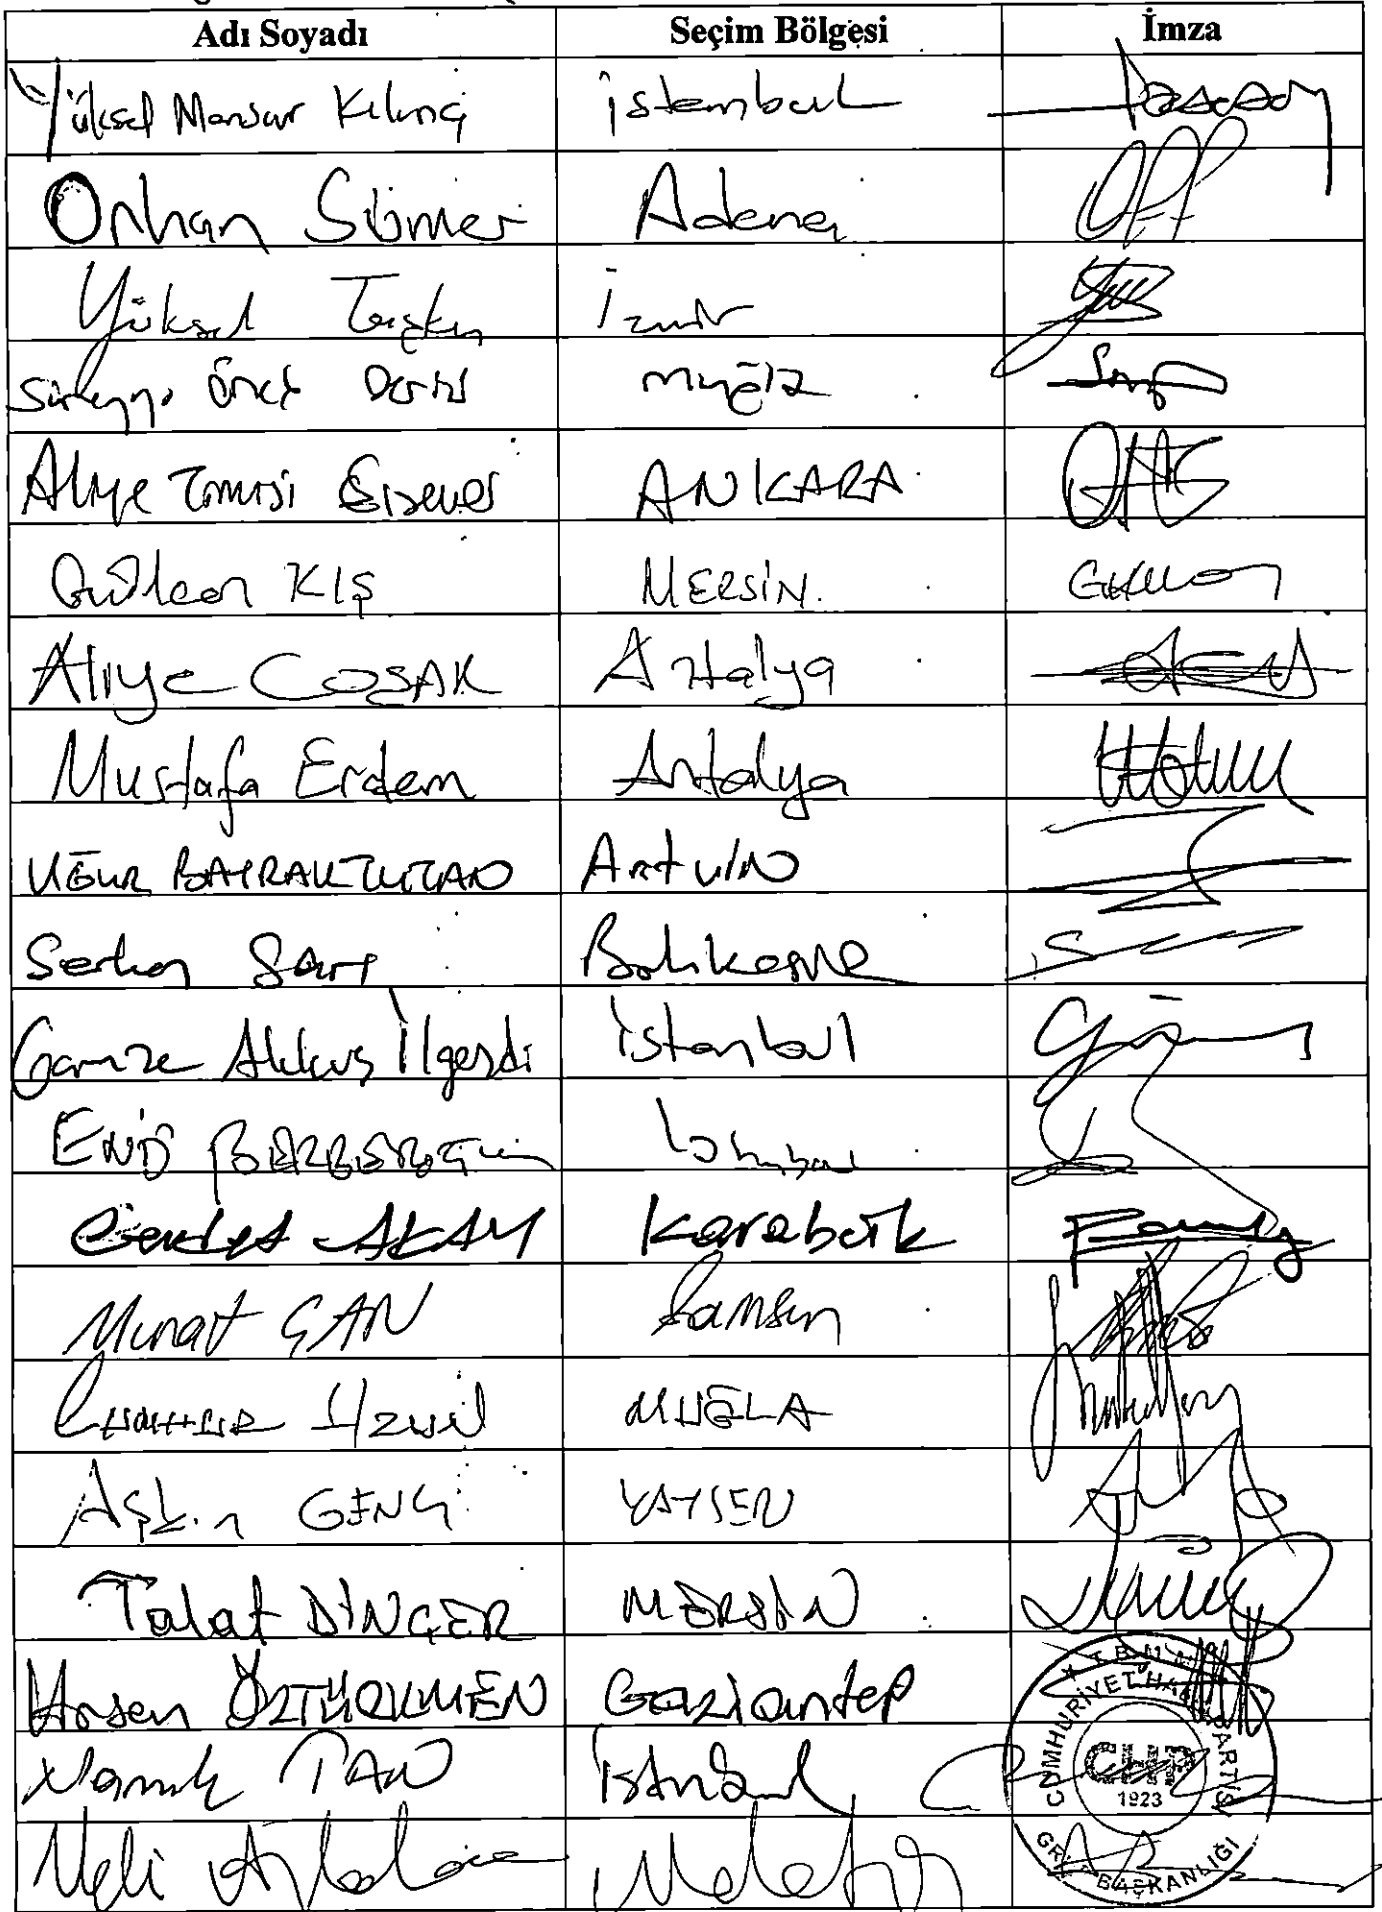 Adı Soyadı Seçim Bölgesi İmza
Yüksel Mansur Kılınç istanbul
Orhan Sümer Adana
Yüksel Taşkın İzmir
Süreyya Öneş Derici muğla
Aliye Timisi Ersever ANKARA
Gülcan KIŞ MERSİN.
Aliye COŞAR Antalya
Mustafa Erdem Antalya
UĞUR BAYRAKTUTAN ArtvİN
Serkan Sarı Balıkesir
Gamze Akkuş İlgezdi istanbul
ENİS BERBEROĞLU İstanbul
Cevdet AKAY Karabük
Murat ÇAN Samsun
CUMHUR Uzun MUĞLA
Aşkın GENÇ KAYSERİ
Talat DİNÇER MERSİN
Hasan ÖZTÜRKMEN Gaziantep
Namık TAN istanbul
Veli Ağbaba Malatya
T.B.M.M.
CUMHURİYET HALK PARTİSİ
CHP
1923
GRUP BAŞKANLIĞI